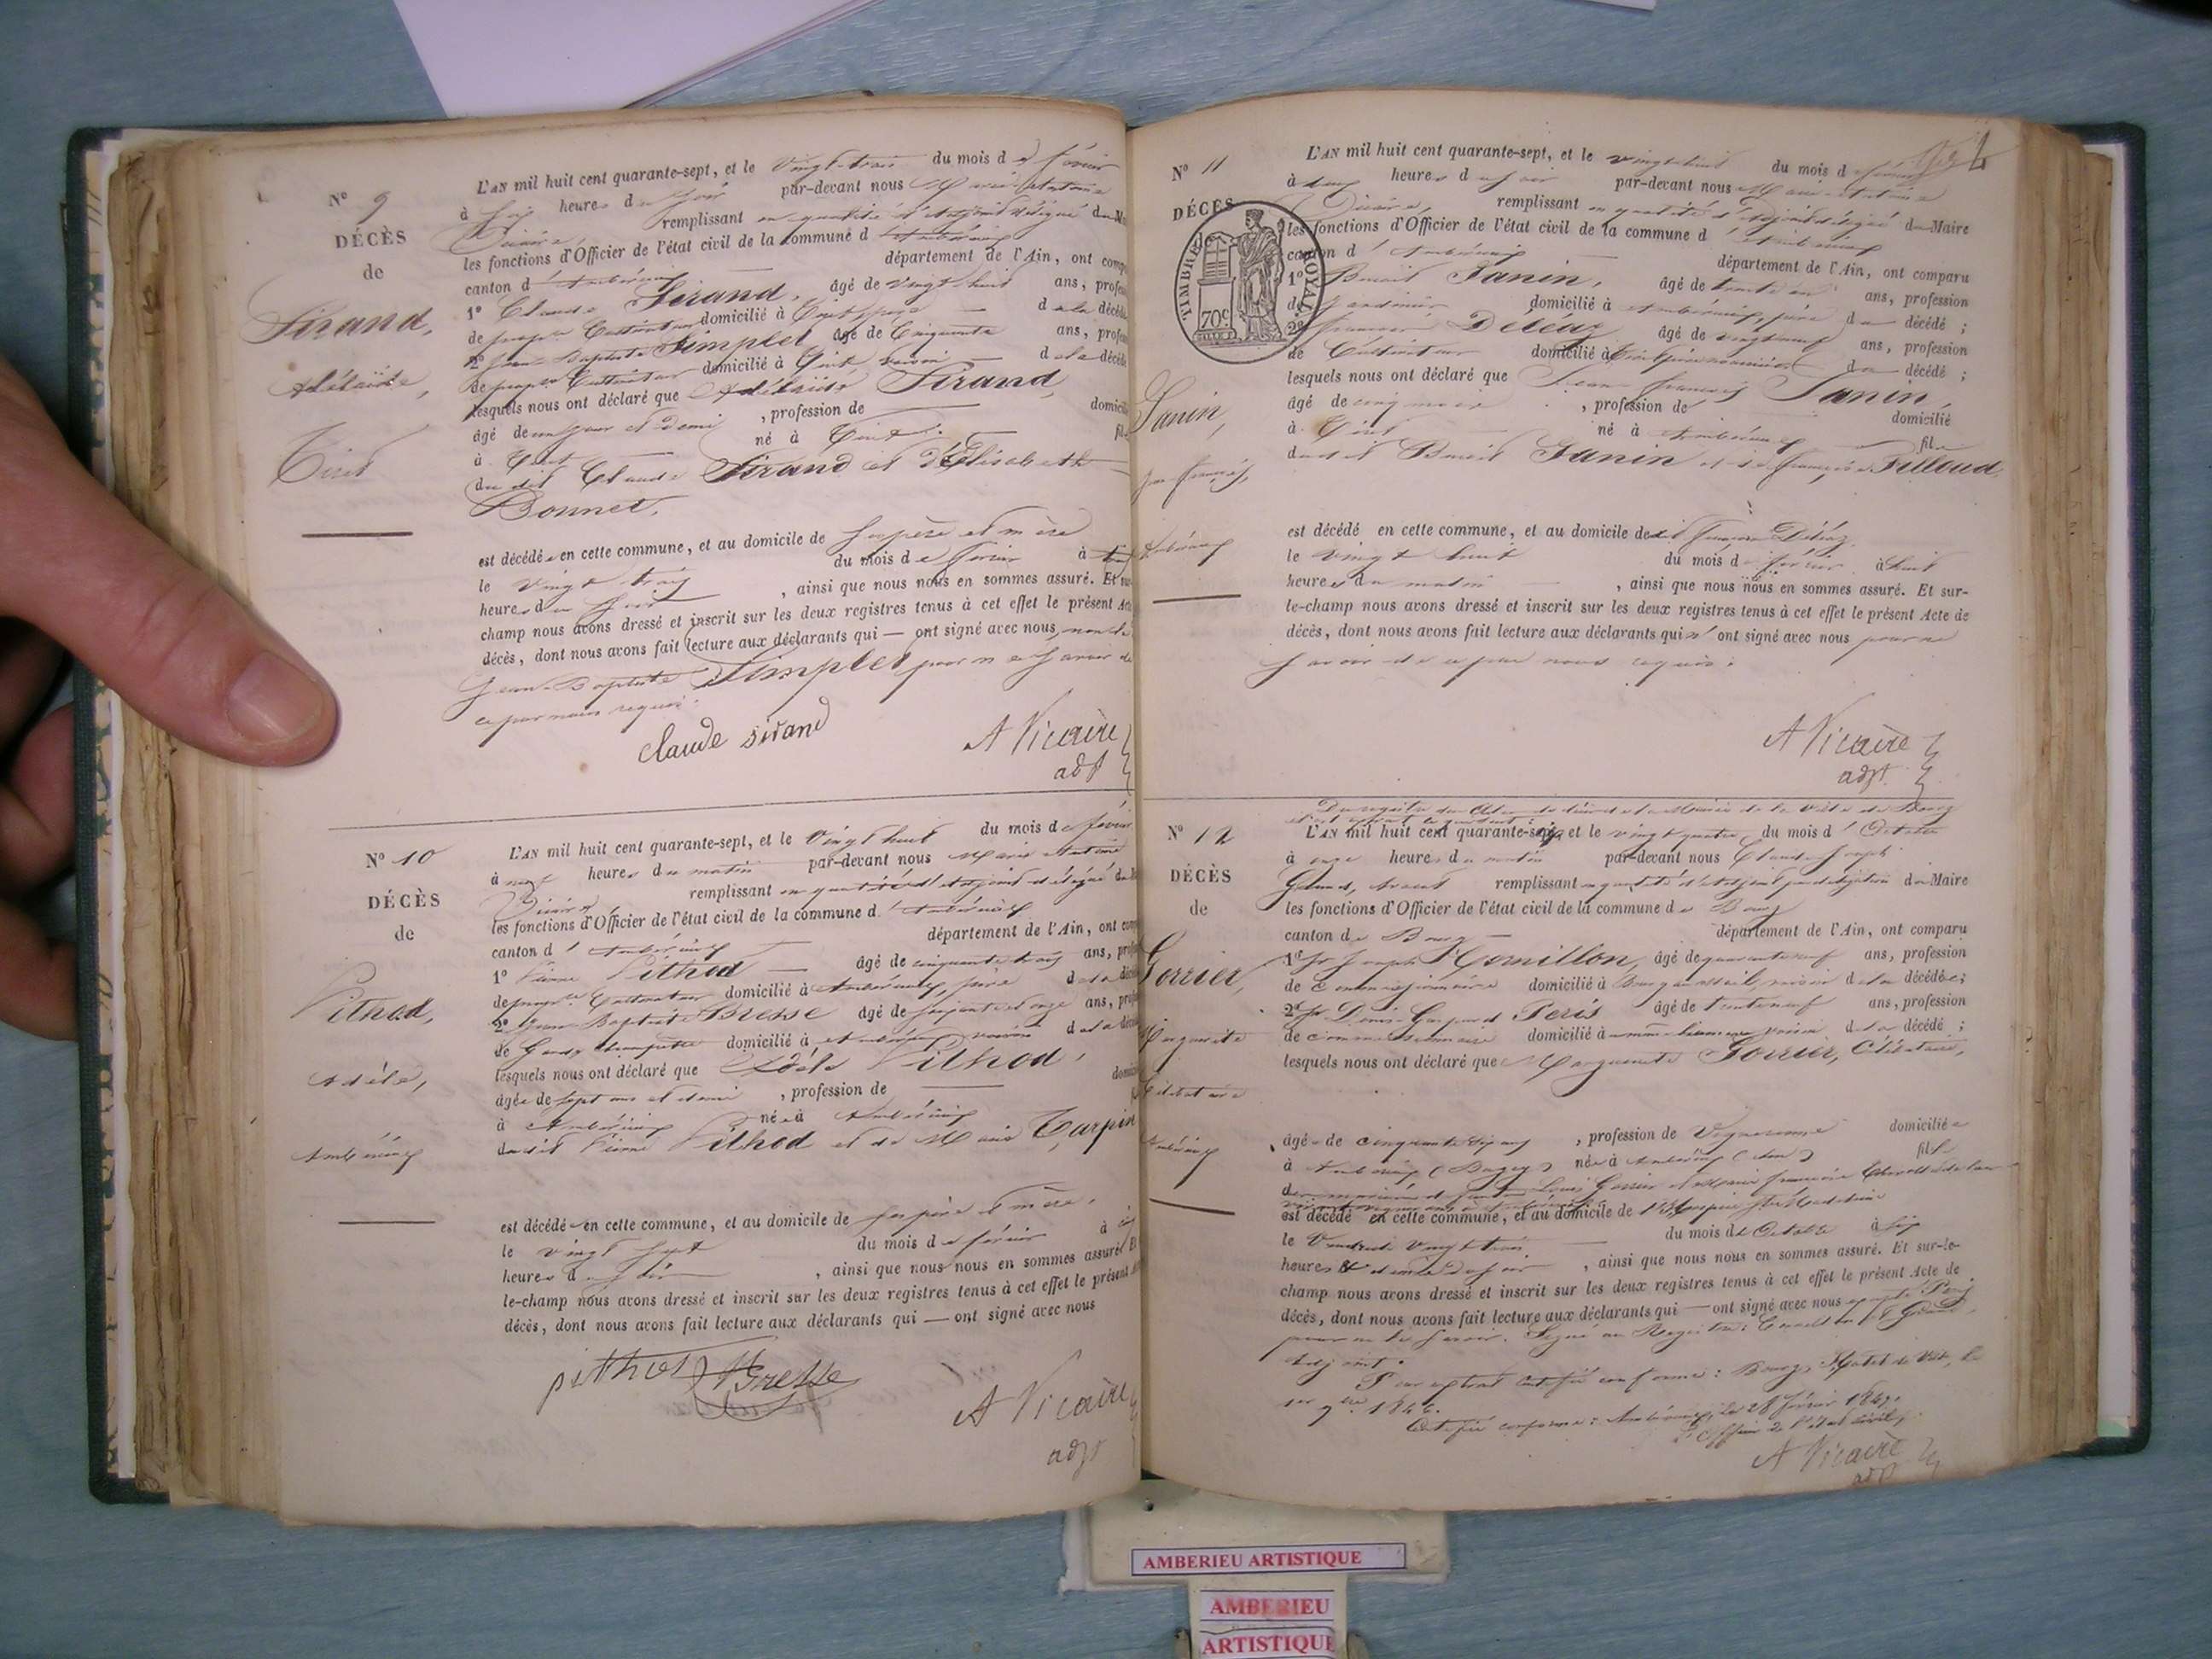 N° 9
DÉCÈS
de
Sirand,
Adélaïde,
Tiret
L'AN mil huit cent quarante-sept, et le vingt-trois du mois de février
à six heures du soir par-devant nous Marie Antoine
Vicaire remplissant en qualité d'adjoint délégué du M
les fonctions d'Officier de l'état civil de la commune d'Ambérieux
canton d'Ambérieux département de l'Ain, ont comp
1° Claude Sirand, âgé de vingt huit ans, profes
de propre Cultivateur domicilié à Tiret, père de la décéd
2° Jean Baptiste Simplet âgé de Cinquante ans, profes
de propre Cultivateur domicilié à Tiret, voisin de la décéd
lesquels nous ont déclaré que Adélaïde Sirand,
âgé de un jour et demi , profession de domicil
à Tiret né à Tiret fil
du dit Claude Sirand et d'Elisabeth
Bonnet,
est décédée en cette commune, et au domicile de ses père et mère
le vingt trois du mois de février à
heures du soir , ainsi que nous nous en sommes assuré. Et sur
champ nous avons dressé et inscrit sur les deux registres tenus à cet effet le présent Acte
décès, dont nous avons fait lecture aux déclarants qui — ont signé avec nous, non le
Jean-Baptiste Simplet pour ne savoir de
ce par nous requis.
claude sirand
A Vicaire
adjt
N° 10
DÉCÈS
de
Pithod,
Adéle,
Ambérieux
L'AN mil huit cent quarante-sept, et le vingt huit du mois de février
à neuf heures du matin par-devant nous Marie Antoine
Vicaire remplissant en qualité d'adjoint délégué du M
les fonctions d'Officier de l'état civil de la commune d'Ambérieux
canton d'Ambérieux département de l'Ain, ont comp
1° Pierre Pithod — âgé de cinquante trois ans, profes
de propre Cultivateur domicilié à Ambérieux, père de la décéd
2° Jean Baptiste Bresse âgé de soixante et onze ans, profes
de Garde champêtre domicilié à Ambérieux, voisin de la décéd
lesquels nous ont déclaré que Adéle Pithod,
âgée de sept ans et demi , profession de — domici
à Ambérieux née à Ambérieux
dudit Pierre Pithod et de Marie Turpin
est décédée en cette commune, et au domicile de ses père et mère,
le vingt sept du mois de février à
heures du soir , ainsi que nous nous en sommes assuré. Et
le-champ nous avons dressé et inscrit sur les deux registres tenus à cet effet le présent
décès, dont nous avons fait lecture aux déclarants qui — ont signé avec nous
pithod Bresse
A Vicaire
adjt
N° 11
DÉCÈS
TIMBRE ROYAL
70c
Janin,
Jean François,
Ambérieux
L'AN mil huit cent quarante-sept, et le vingt-huit du mois de février
à deux heures du soir par-devant nous Marie Antoine
Vicaire, remplissant en qualité d'adjoint délégué du Maire
les fonctions d'Officier de l'état civil de la commune d'Ambérieux
canton d'Ambérieux département de l'Ain, ont comparu
1° Benoit Janin, âgé de trente un ans, profession
de Jardinier domicilié à Ambérieux, père du décédé ;
2° François Déléaz âgé de vingt neuf ans, profession
de Cultivateur domicilié à Tiret, père nourricier du décédé ;
lesquels nous ont déclaré que Jean François Janin,
âgé de cinq mois , profession de domicilié
à Tiret né à Ambérieux fil
dudit Benoit Janin et de Françoise Filliod
est décédé en cette commune, et au domicile dudit François Déléaz
le vingt huit du mois de février à huit
heures du matin , ainsi que nous nous en sommes assuré. Et sur-
le-champ nous avons dressé et inscrit sur les deux registres tenus à cet effet le présent Acte de
décès, dont nous avons fait lecture aux déclarants qui n'ont signé avec nous pour ne
savoir de ce par nous requis.
A Vicaire
adjt
N° 12
DÉCÈS
de
Gorrier,
Marguerite
Célibataire
Ambérieux
Du registre des Actes de décès de la Mairie de la Ville de Bourg
est extrait ce qui suit :
L'AN mil huit cent quarante-six, et le vingt quatre du mois d'Octobre
à onze heures du matin par-devant nous Claude Joseph
remplissant en qualité d'adjoint par délégation du Maire
les fonctions d'Officier de l'état civil de la commune de Bourg
canton de Bourg département de l'Ain, ont comparu
1° Sr Joseph Cornillon, âgé de quarante neuf ans, profession
de Commissionnaire domicilié à Bourg voisin de la décédée;
2° Sr Denis Gaspard Peris âgé de trente neuf ans, profession
de commissionnaire domicilié à même lieu voisin de la décédé ;
lesquels nous ont déclaré que Marguerite Gorrier, Célibataire,
âgée de cinquante six ans , profession de Vigneronne domiciliée
à Ambérieux (Bugey) née à Ambérieux (Ain) fille
Louis Gorrier et Marie françoise
est décédé en cette commune, et au domicile de l'hospice Ste Madeleine
le Vendredi vingt trois du mois de Octobre à six
heures & demie du soir , ainsi que nous nous en sommes assuré. Et sur-le-
champ nous avons dressé et inscrit sur les deux registres tenus à cet effet le présent Acte de
décès, dont nous avons fait lecture aux déclarants qui — ont signé avec nous
pour ne le savoir. Signé au Registre :
adjoint.
Pour extrait certifié conforme : Bourg, Hôtel de Ville, le
1er 9bre 1846.
Certifié conforme : Ambérieux, le 28 février 1847.
L'officier de l'état civil,
A Vicaire
adjt
AMBERIEU ARTISTIQUE
AMBERIEU
ARTISTIQUE